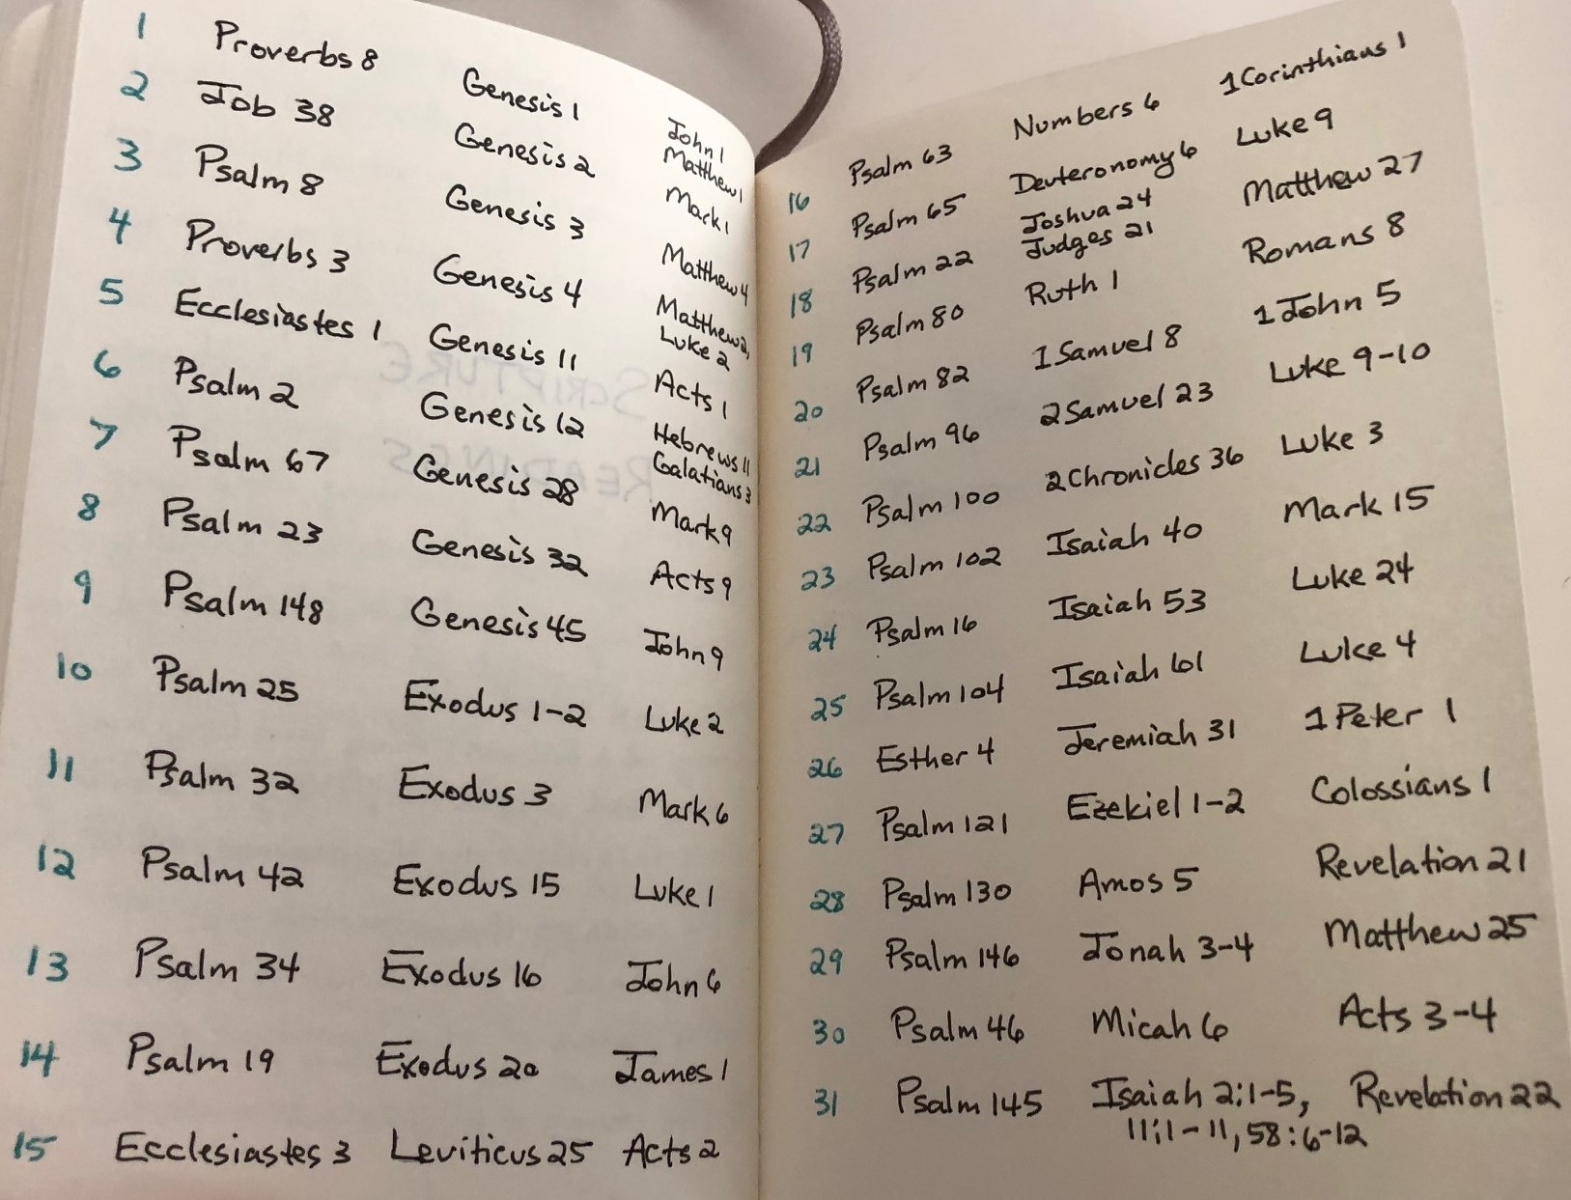 1 Proverbs 8 Genesis 1 John 1
Matthew 1
2 Job 38 Genesis 2 Mark 1
3 Psalm 8 Genesis 3 Matthew 4
4 Proverbs 3 Genesis 4 Matthew 2,
Luke 2
5 Ecclesiastes 1 Genesis 11 Acts 1
6 Psalm 2 Genesis 12 Hebrews 11
Galatians 3
7 Psalm 67 Genesis 28 Mark 9
8 Psalm 23 Genesis 32 Acts 9
9 Psalm 148 Genesis 45 John 9
10 Psalm 25 Exodus 1-2 Luke 2
11 Psalm 32 Exodus 3 Mark 6
12 Psalm 42 Exodus 15 Luke 1
13 Psalm 34 Exodus 16 John 6
14 Psalm 19 Exodus 20 James 1
15 Ecclesiastes 3 Leviticus 25 Acts 2
16 Psalm 63 Numbers 6 1 Corinthians 1
17 Psalm 65 Deuteronomy 6 Luke 9
18 Psalm 22 Joshua 24 Matthew 27
Judges 21
19 Psalm 80 Ruth 1 Romans 8
20 Psalm 82 1 Samuel 8 1 John 5
21 Psalm 96 2 Samuel 23 Luke 9-10
22 Psalm 100 2 Chronicles 36 Luke 3
23 Psalm 102 Isaiah 40 Mark 15
24 Psalm 16 Isaiah 53 Luke 24
25 Psalm 104 Isaiah 61 Luke 4
26 Esther 4 Jeremiah 31 1 Peter 1
27 Psalm 121 Ezekiel 1-2 Colossians 1
28 Psalm 130 Amos 5 Revelation 21
29 Psalm 146 Jonah 3-4 Matthew 25
30 Psalm 46 Micah 6 Acts 3-4
31 Psalm 145 Isaiah 2:1-5, Revelation 22
11:1-11, 58:6-12